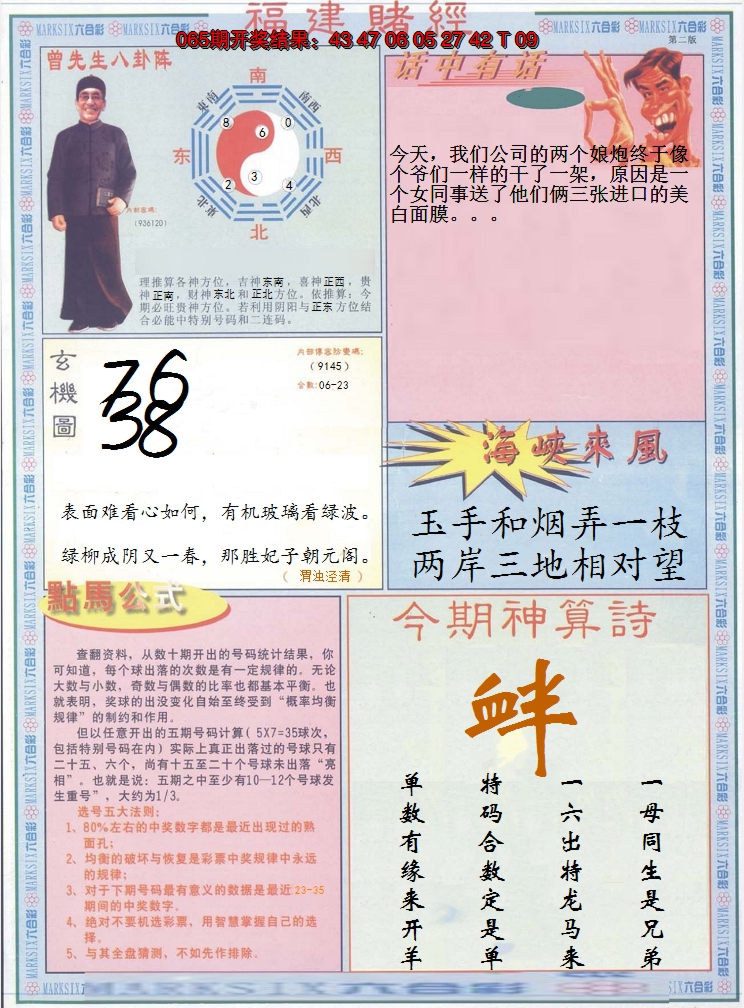 福建賭經
065期开奖结果：43 47 06 05 27 42 T 09
MARKSIX六合彩
第二版
曾先生八卦阵
南
東南
南西
8
6
0
东
西
2
3
4
東北
北西
北
內部密碼:
(936120)
理推算各神方位，吉神东南，喜神正西，贵
神正南，财神东北和正北方位。依推算：今
期必旺贵神方位。若利用阴阳与正东方位结
合必能中特别号码和二连码。
话中有话
今天，我们公司的两个娘炮终于像
个爷们一样的干了一架，原因是一
个女同事送了他们俩三张进口的美
白面膜。。。
玄機圖
76
38
（9145）
合数:06-23
表面难看心如何，有机玻璃看绿波。
绿柳成阴又一春，那胜妃子朝元阁。
（ 渭浊泾清 ）
海峽來風
玉手和烟弄一枝
两岸三地相对望
點馬公式
查翻资料，从数十期开出的号码统计结果，你
可知道，每个球出落的次数是有一定规律的。无论
大数与小数，奇数与偶数的比率也都基本平衡。也
就表明，奖球的出没变化自始至终受到“概率均衡
规律”的制约和作用。
但以任意开出的五期号码计算( 5X7=35球次，
包括特别号码在内) 实际上真正出落过的号球只有
二十五、六个，尚有十五至二十个号球未出落“亮
相”。也就是说：五期之中至少有10—12个号球发
生重号”，大约为1/3。
选号五大法则：
1、80%左右的中奖数字都是最近出现过的熟
面孔；
2、均衡的破坏与恢复是彩票中奖规律中永远
的规律；
3、对于下期号码最有意义的数据是最近23-35
期间的中奖数字。
4、绝对不要机选彩票，用智慧掌握自己的选
择。
5、与其全盘猜测，不如先作排除。
今期神算詩
衅
一母同生是兄弟
一六出特龙马来
特码合数定是单
单数有缘来开羊